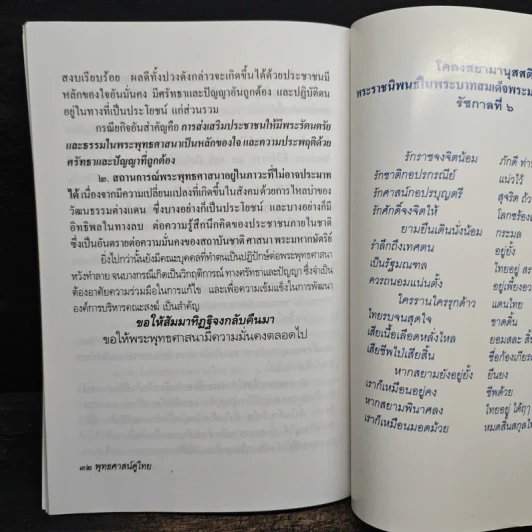 สงบเรียบร้อย ผลดีทั้งปวงดังกล่าวจะเกิดขึ้นได้ด้วยประชาชนมี
หลักของใจอันมั่นคง มีศรัทธาและปัญญาอันถูกต้อง และปฏิบัติตน
อยู่ในทางที่เป็นประโยชน์ แก่ส่วนรวม
กรณียกิจอันสำคัญคือ การส่งเสริมประชาชนให้มีพระรัตนตรัย
และธรรมในพระพุทธศาสนาเป็นหลักของใจ และความประพฤติด้วย
ศรัทธาและปัญญาที่ถูกต้อง
๒. สถานการณ์พระพุทธศาสนาอยู่ในภาวะที่ไม่อาจประมาท
ได้ เนื่องจากมีความเปลี่ยนแปลงที่เกิดขึ้นในสังคมด้วยการไหลบ่าของ
วัฒนธรรมต่างแดน ซึ่งบางอย่างก็เป็นประโยชน์ และบางอย่างก็มี
อิทธิพลในทางลบ ต่อความรู้สึกนึกคิดของประชาชนภายในชาติ
ซึ่งเป็นอันตรายต่อความมั่นคงของสถาบันชาติ ศาสนา พระมหากษัตริย์
ยิ่งไปกว่านั้นยังมีคณะบุคคลที่ทำตนเป็นปฏิปักษ์ต่อพระพุทธศาสนา
หวังทำลาย จนบางกรณีเกิดเป็นวิกฤติการณ์ ทางศรัทธาและปัญญา ซึ่งจำเป็น
ต้องอาศัยความร่วมมือในการแก้ไข และเพื่อความเข้มแข็งในการพัฒนา
องค์การบริหารคณะสงฆ์ เป็นสำคัญ
ขอให้สัมมาทิฏฐิจงกลับคืนมา
ขอให้พระพุทธศาสนามีความมั่นคงตลอดไป
๓๒ พุทธศาสน์คู่ไทย
โคลงสยามานุสสติ
พระราชนิพนธ์ในพระบาทสมเด็จพระม
รัชกาลที่ ๖
รักราชจงจิตน้อม ภักดี ท่า
รักชาติกอปรกรณีย์ แน่วไว้
รักศาสน์กอปรบุญตรี สุจริต ถ้ว
รักศักดิ์จงจิตให้ โลกซร้อง
ยามยืนเดินนั่งน้อม กระมล
รำลึกถึงเทศตน อยู่ยั้ง
เป็นรัฐมณฑล ไทยอยู่ สรา
ควรถนอมแน่นตั้ง อยู่เพี้ยงอว
ใครรานใครรุกด้าว แดนไทย
ไทยรบจนสุดใจ ขาดดิ้น
เสียเนื้อเลือดหลั่งไหล ยอมสละ สิ้
เสียชีพไป่เสียสิ้น ชื่อก้องเกียร
หากสยามยังอยู่ยั้ง ยืนยง
เราก็เหมือนอยู่คง ชีพด้วย
หากสยามพินาศลง ไทยอยู่ ได้ฤา
เราก็เหมือนมอดม้วย หมดสิ้นสกุลไท